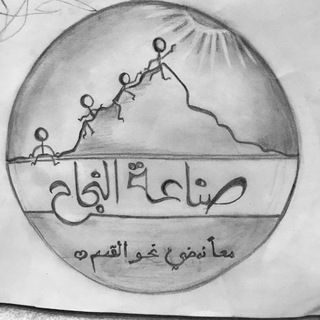 صناعة النجاح
معاً نمضي نحو القمم